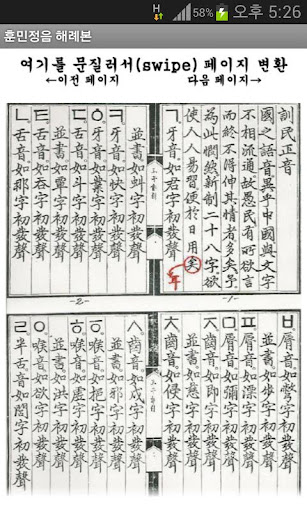 58% 오후 5:26
훈민정음 해례본
여기를 문질러서(swipe) 페이지 변환
←이전 페이지 다음 페이지→
訓民正音
國之語音異乎中國與文字
不相流通故愚民有所欲言
而終不得伸其情者多矣予
為此憫然新制二十八字欲
使人人易習便於日用矣
耳
ㄱ牙音如君字初發聲
-1-
並書如虯字初發聲
ㅋ牙音如快字初發聲
ㆁ牙音如業字初發聲
ㄷ舌音如斗字初發聲
並書如覃字初發聲
ㅌ舌音如呑字初發聲
ㄴ舌音如那字初發聲
-2-
ㅂ脣音如彆字初發聲
並書如步字初發聲
ㅍ脣音如漂字初發聲
ㅁ脣音如彌字初發聲
ㅈ齒音如即字初發聲
並書如慈字初發聲
ㅊ齒音如侵字初發聲
ㅅ齒音如戌字初發聲
並書如邪字初發聲
ㆆ喉音如挹字初發聲
ㅎ喉音如虛字初發聲
並書如洪字初發聲
ㅇ喉音如欲字初發聲
ㄹ半舌音如閭字初發聲